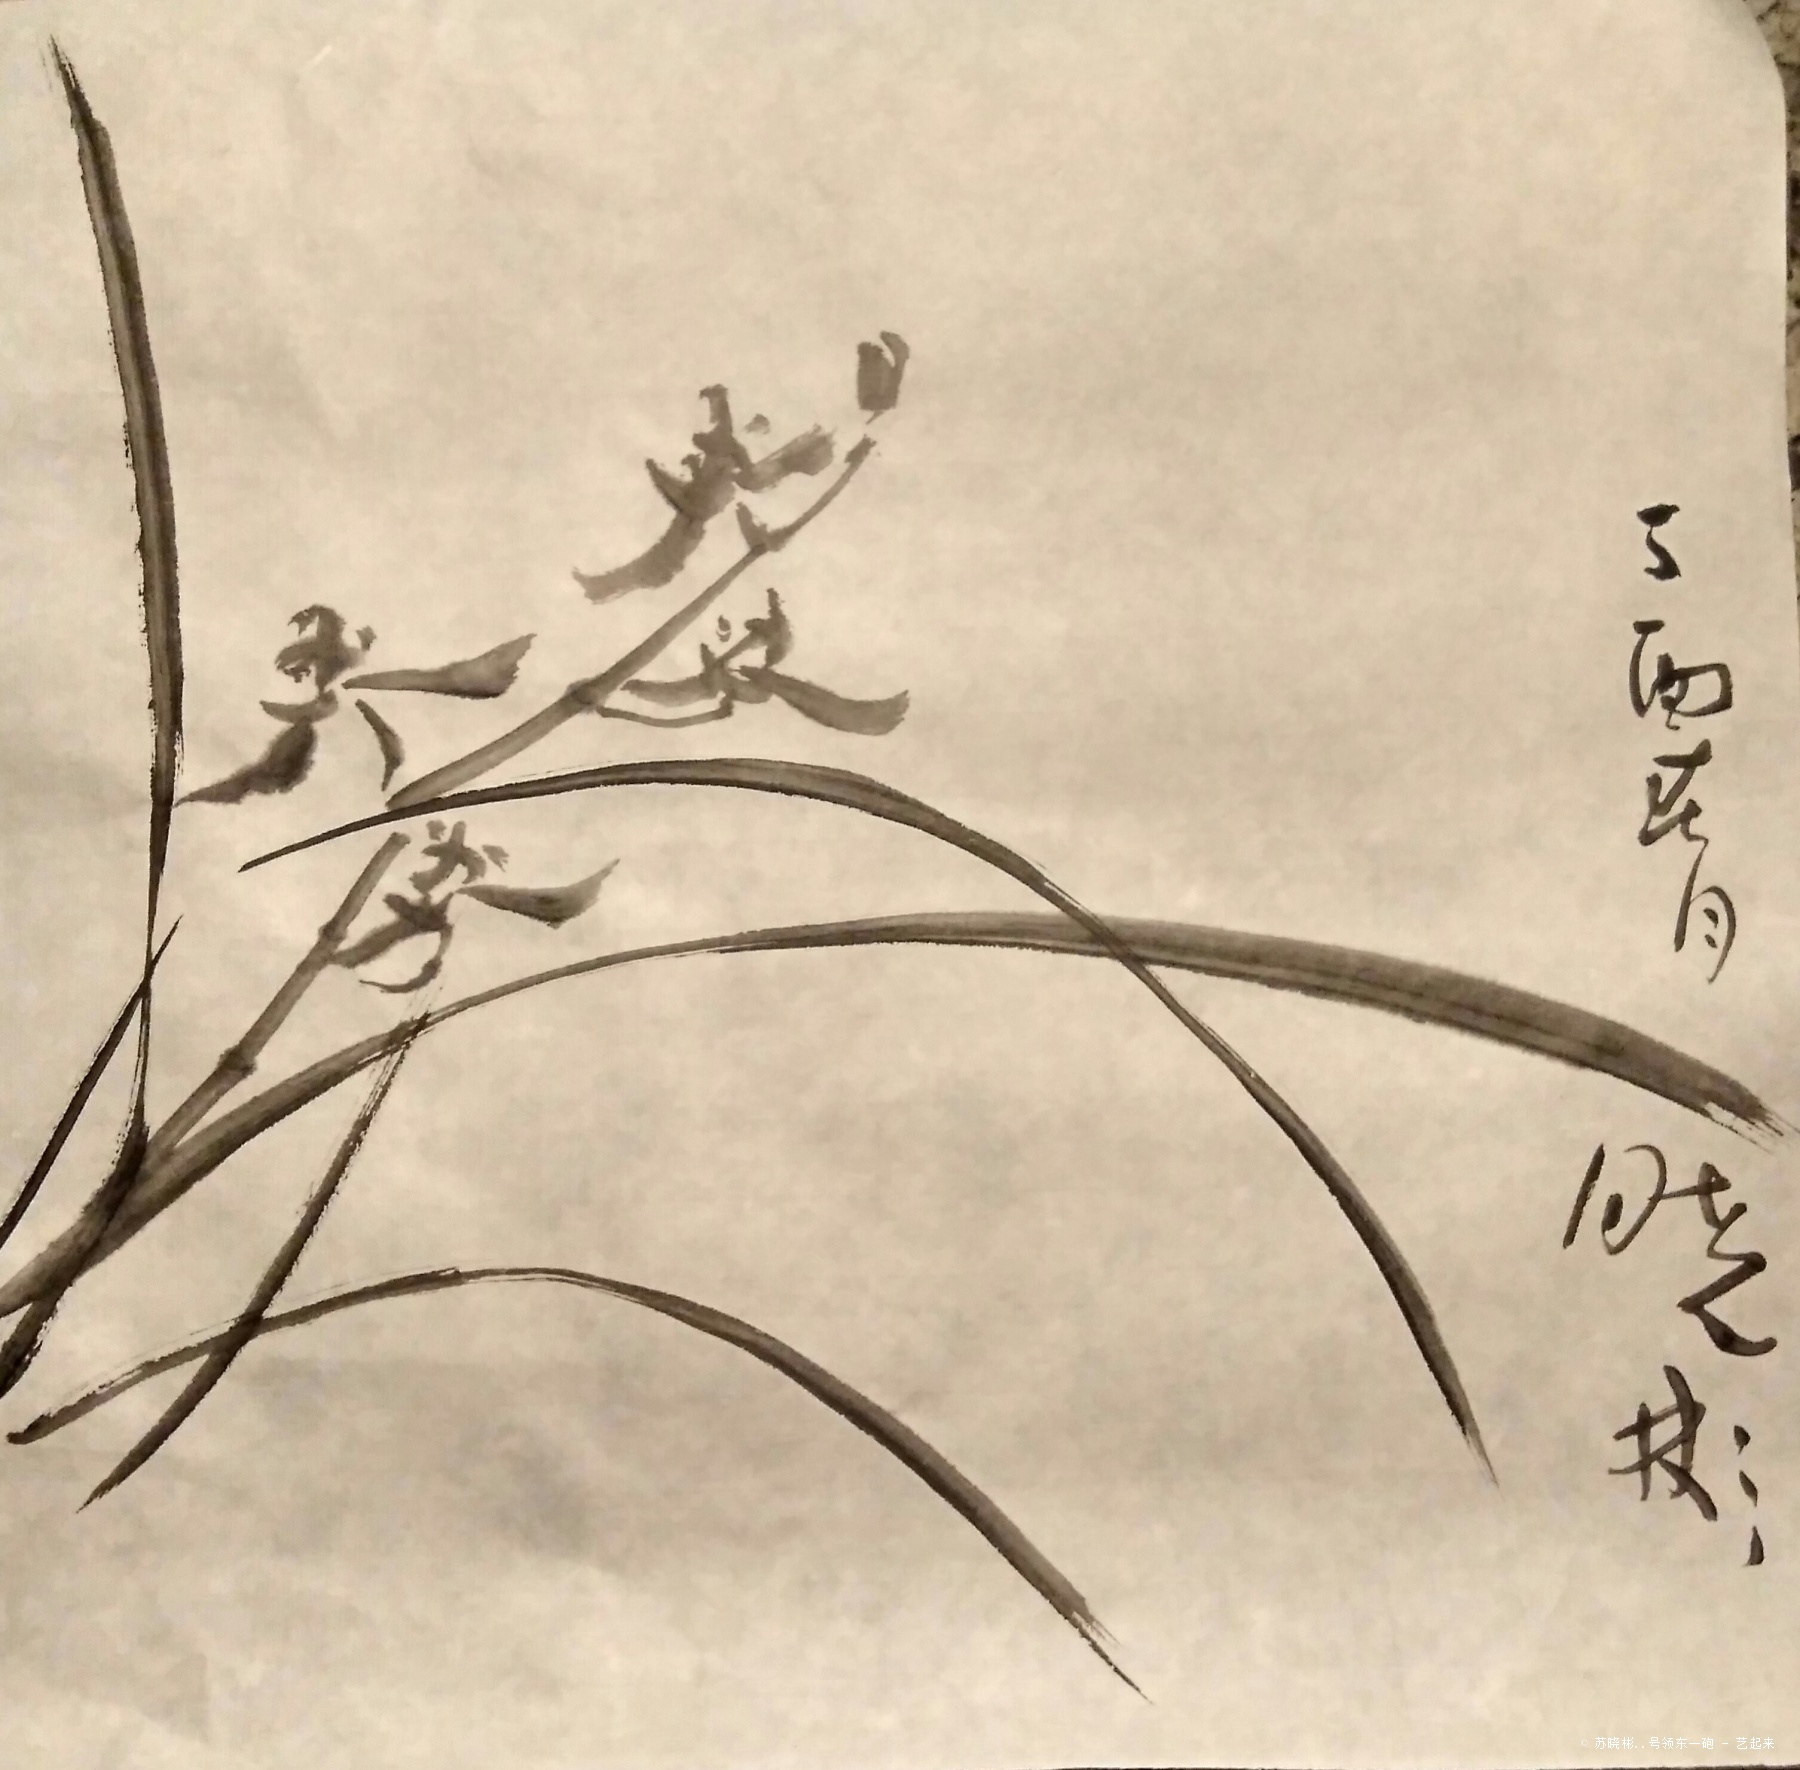 丁酉春月
晓彬
© 苏晓彬..号领东一砲 - 艺起来